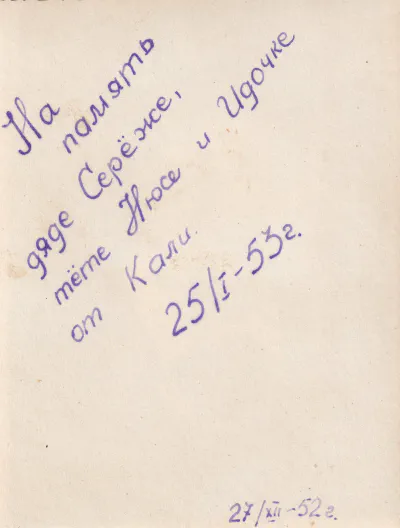 На
память
дяде Серёже,
тёте Нюсе и Идочке
от Кали.
25/I-53г.
27/XII-52г.